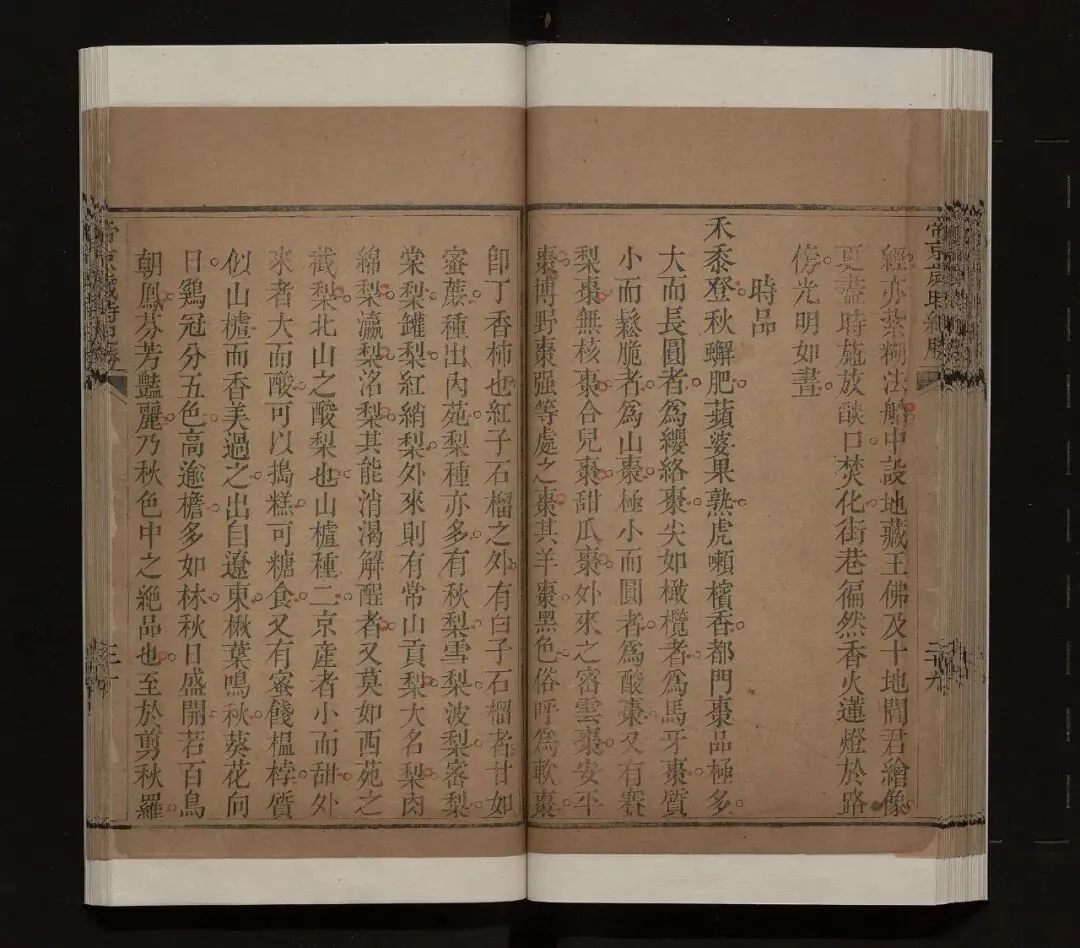 經亦紮糊法船中設地藏王佛及十地閻君繪像
更盡時施放燄口焚化街巷徧然香火蓮燈於路
傍光明如晝
時品
禾黍登秋蠏肥蘋婆果熟虎喇檳香都門棗品極多
大而長圓者爲纓絡棗尖如橄欖者爲馬牙棗質
小而鬆脆者爲山棗極小而圓者爲酸棗又有賽
梨棗無核棗合兒棗甜瓜棗外來之密雲棗安平
棗博野棗强等處之棗其羊棗黑色俗呼爲軟棗
卽丁香柿也紅子石榴之外有白子石榴者甘如
蜜蔗種出內苑梨種亦多有秋梨雪梨波梨密梨
棠梨罐梨紅綃梨外來則有常山貢梨大名梨肉
綿梨瀛梨洺梨其能消渴解酲者又莫如西苑之
截梨北山之酸梨也山樝種二京產者小而甜外
來者大而酸可以搗糕可糖食又有蜜餞榲桲質
似山樝而香美過之出自遼東楸葉鳴秋葵花向
日鷄冠分五色高逾檐多如林秋日盛開若百鳥
朝鳳芬芳豔麗乃秋色中之絕品也至於剪秋羅
帝京歲時紀勝
二十九
三十